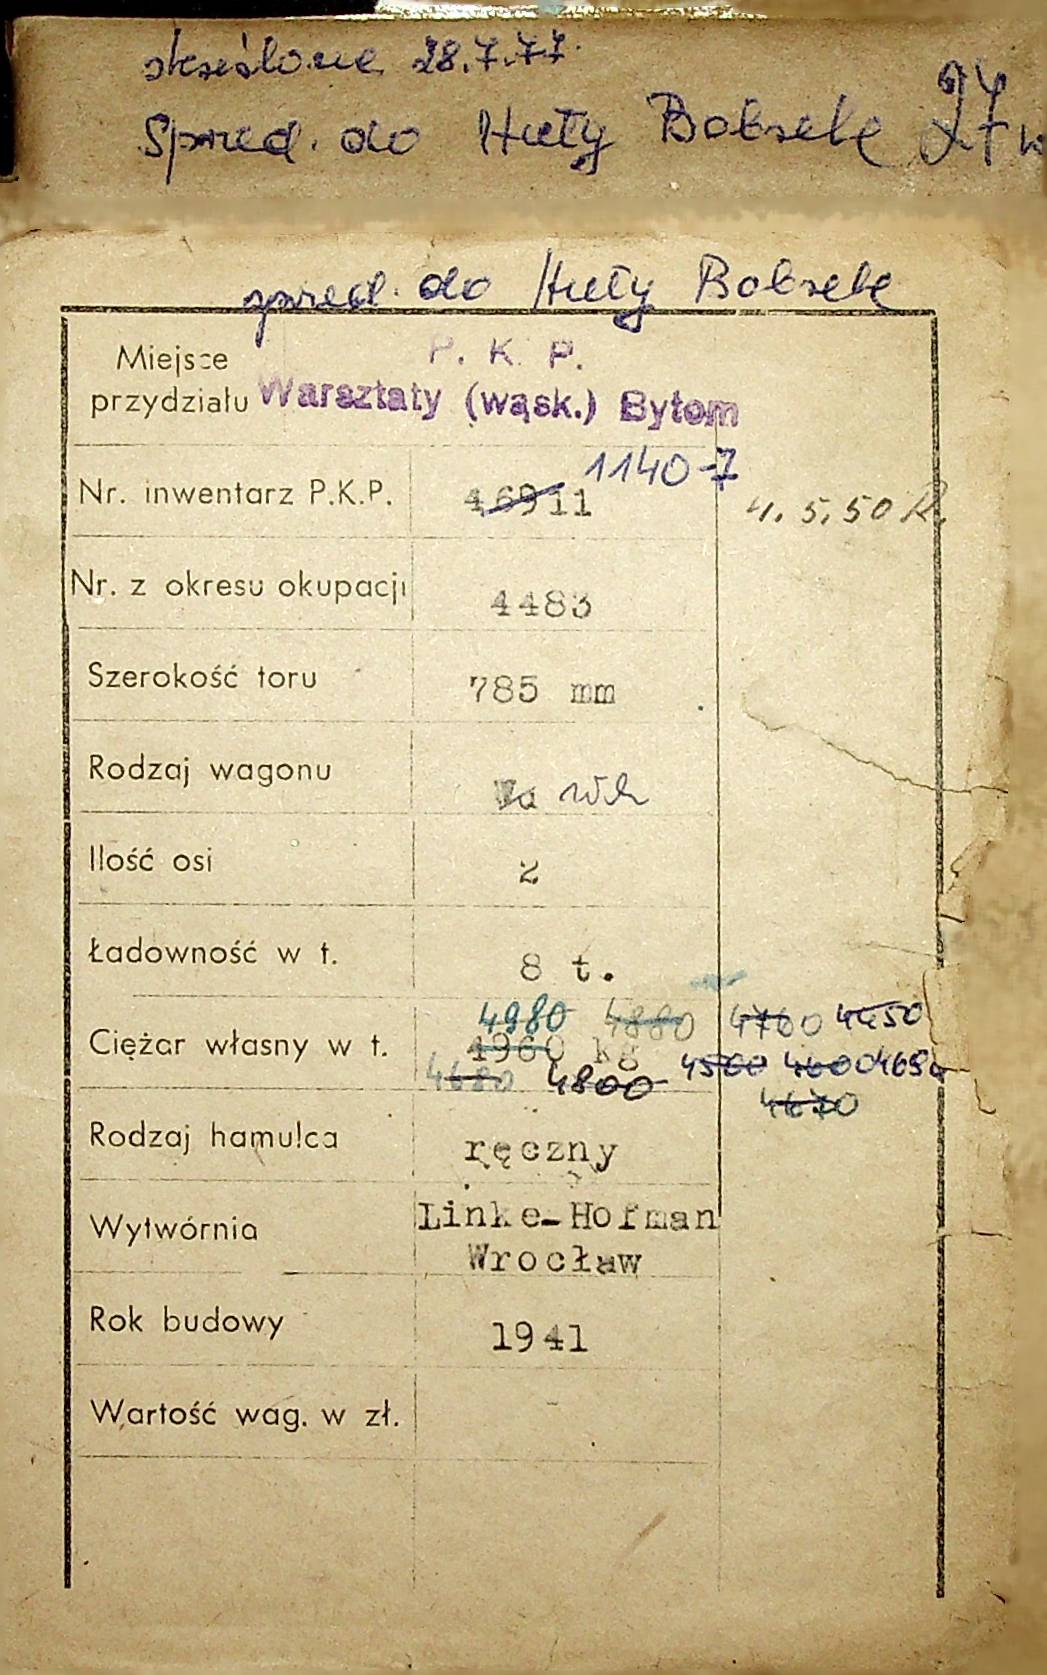 skreślone 28.7.77.
Spred. do Huty Bobrek 27
spred. do Huty Bobrek
Miejsce przydziału P. K. P. Warsztaty (wąsk.) Bytom
1140-7
Nr. inwentarz P.K.P. 46911 4.5.50 R.
Nr. z okresu okupacji 4483
Szerokość toru 785 mm
Rodzaj wagonu
Ilość osi 2
Ładowność w t. 8 t.
4980 4880 4760 4450
Ciężar własny w t. 4960 kg 4500 4600 4650
4680 4800 4670
Rodzaj hamulca ręczny
Wytwórnia Linke-Hofman
Wrocław
Rok budowy 1941
Wartość wag. w zł.